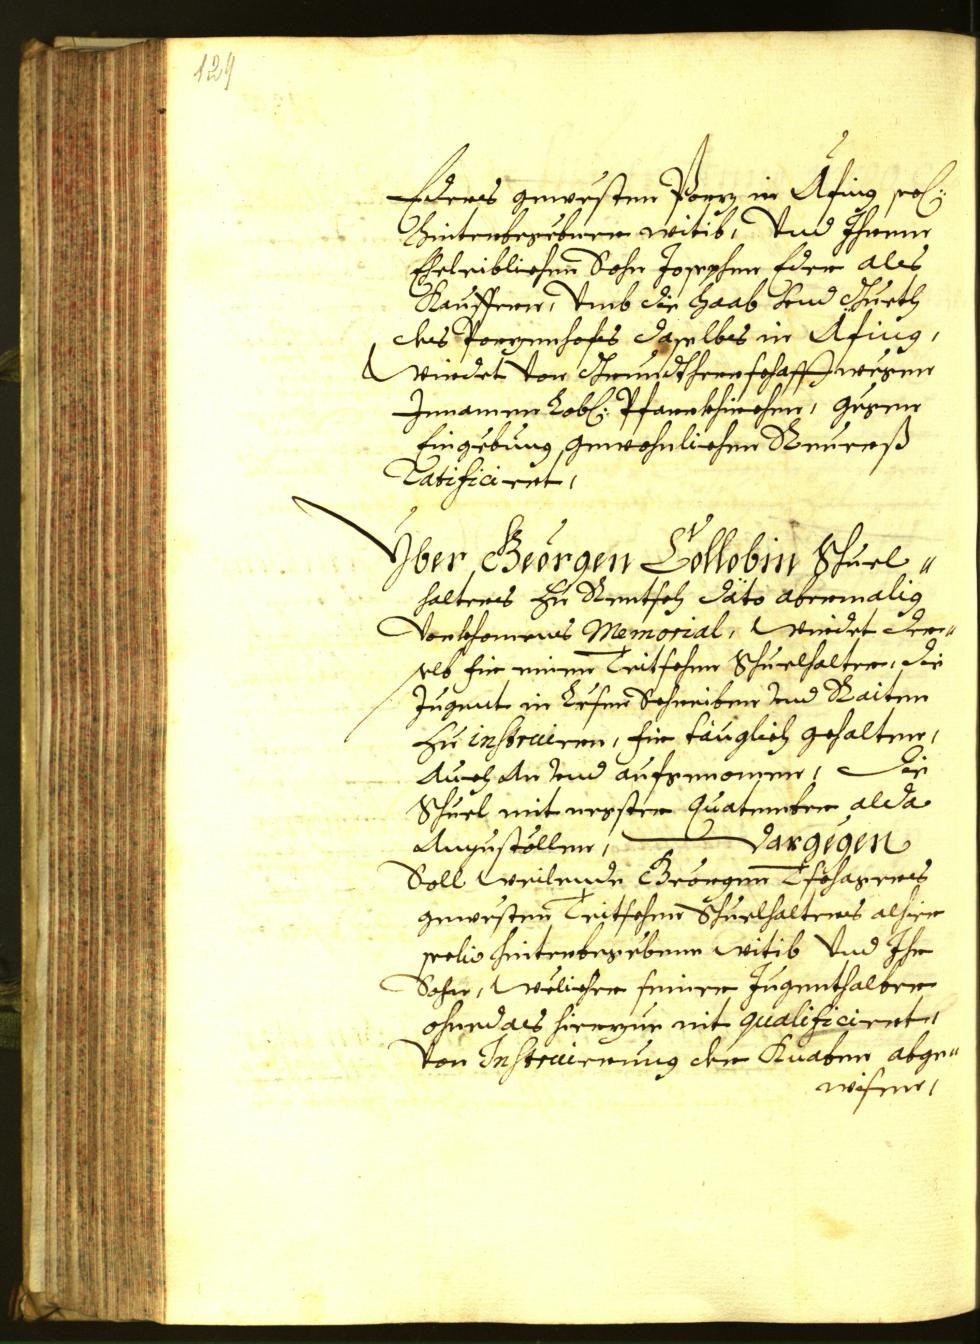 129
Eders gewesten Porz in Äfing sel:
hinterbesebner witib, Vnd Ihrem
Eheleiblichen Sohn Josephen Eder als
Kauffern, Vmb die Haab Vnd Gueth
des Porzenhofes daselbs in Äfing,
wirdet von Grundtherrschafft wegen
Innamen Lobl: Pfarrkhirchen, gegen
Eingebung gewohnlichen Reuerß
Ratificiert,
Vber Geörgen Collobin Schuel"
halters zu Rentsch dato abermalig
Vorkhomens Memorial, wirdet der"
selb für einen Teitschen Schuelhalter, die
Jugent in Lesen Schreiben Vnd Raiten
zu instruiren, für tauglich gehalten,
Auch An Vnd aufgenomen, Die
Schuel mit negster Quatember alda
Anzustöllen, dargegen
Soll weilende Geörgen Tschagers
gewesten Teitschen Schuelhalters alhier
selig hinterbesebene witib Vnd Ihr
Sohn, welicher seiner Jugenthalber
ohnedas hierzue nit qualificiert,
Von Instruierung der Knaben abge"
wisen,